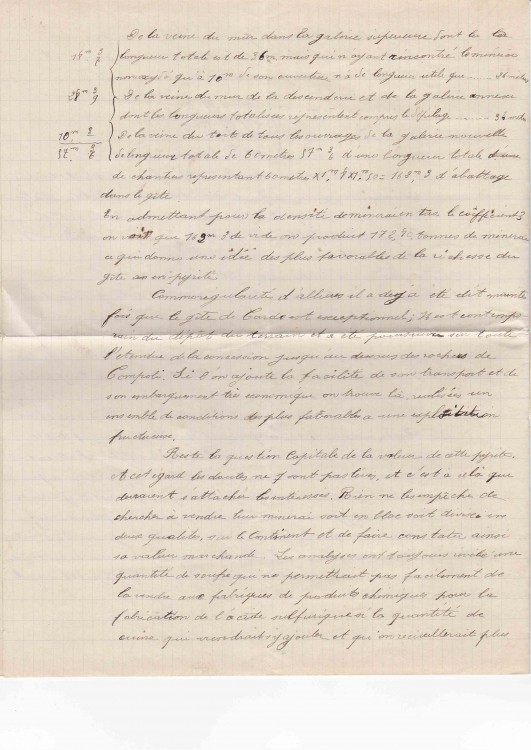 De la veine du mur dans la galerie supérieure dont la la
longueur totale est de 36m mais qui n'ayant rencontré le minerai
qu'à 10m de son ouverture n'a de longueur utile que ...... 26 mètres
De la veine du mur de la descenderie et de la galerie annexe
dont les longueurs totalisées représentent compris le dépilage ......
De la veine du toit de tous les ouvrages de la galerie nouvelle
de longueur totale de 60 mètres d'une longueur totale
de chantiers représentant 60 mètres d'abattage
dans le gîte
En admettant pour la densité du minerai en tre le coëfficient
on voit que 162m 3 de vide on produit tonnes de minerai
ce qui donne une idée des plus favorables de la richesse du
gîte en pyrite
Comme régularité d'allures il a déjà été dit maintes
fois que le gîte de Cardo est exceptionnel; il est contempo-
rain du dépôt des terrain et a été poursuivi sur toute
l'étendue de la concession jusqu'au dessous des roches de
Compoti. Si l'on ajoute la facilité de son transport et de
son embarquement très économique on trouve là, réalisées un
ensemble de conditions des plus favorables a une exploitation
fructueuse.
Reste la question Capitale de la valeur de cette pyrite.
A cet égard les doutes ne sont pas levés, et c'est à cela que
devraient s'attacher les intéressés. Rien ne les empêche de
chercher à vendre leur minerai soit en bloc soit divisé en
deux qualités, sur le Continent et de faire constater ainsi
sa valeur marchande. Les analyses ont toujours révélé une
quantité de soufre qui ne permettrait pas facilement de
la vendre aux fabriques de produits chimiques pour la
fabrication de l'acide sulfurique si la quantité de
cuivre qui viendrait s'y ajouter et qu'on recueillerait plus